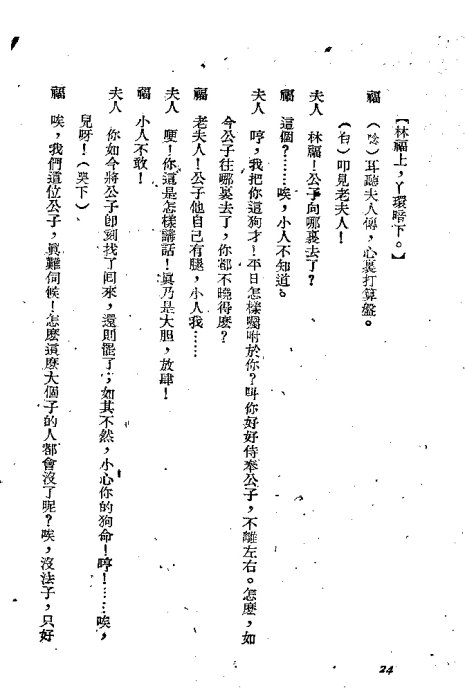 【林福上，丫環暗下。】
福　（唸）耳聽夫人傳，心裏打算盤。
（白）叩見老夫人！
夫人　林福！公子向哪裏去了？
福　這個？……唉，小人不知道。
夫人　哼，我把你這狗才！平日怎樣囑咐於你？叫你好好侍奉公子，不離左右。怎麽，如
今公子往哪裏去了，你都不曉得麽？
福　老夫人！公子他自己有腿，小人我……
夫人　哽！你這是怎樣講話！眞乃是大胆，放肆！
福　小人不敢！
夫人　你如今將公子卽刻找了囘來，還則罷了；如其不然，小心你的狗命！哼！……唉，
兒呀！（哭下）
福　唉，我們這位公子，眞難伺候！怎麽這麽大個子的人都會沒了呢？唉，沒法子，只好
24